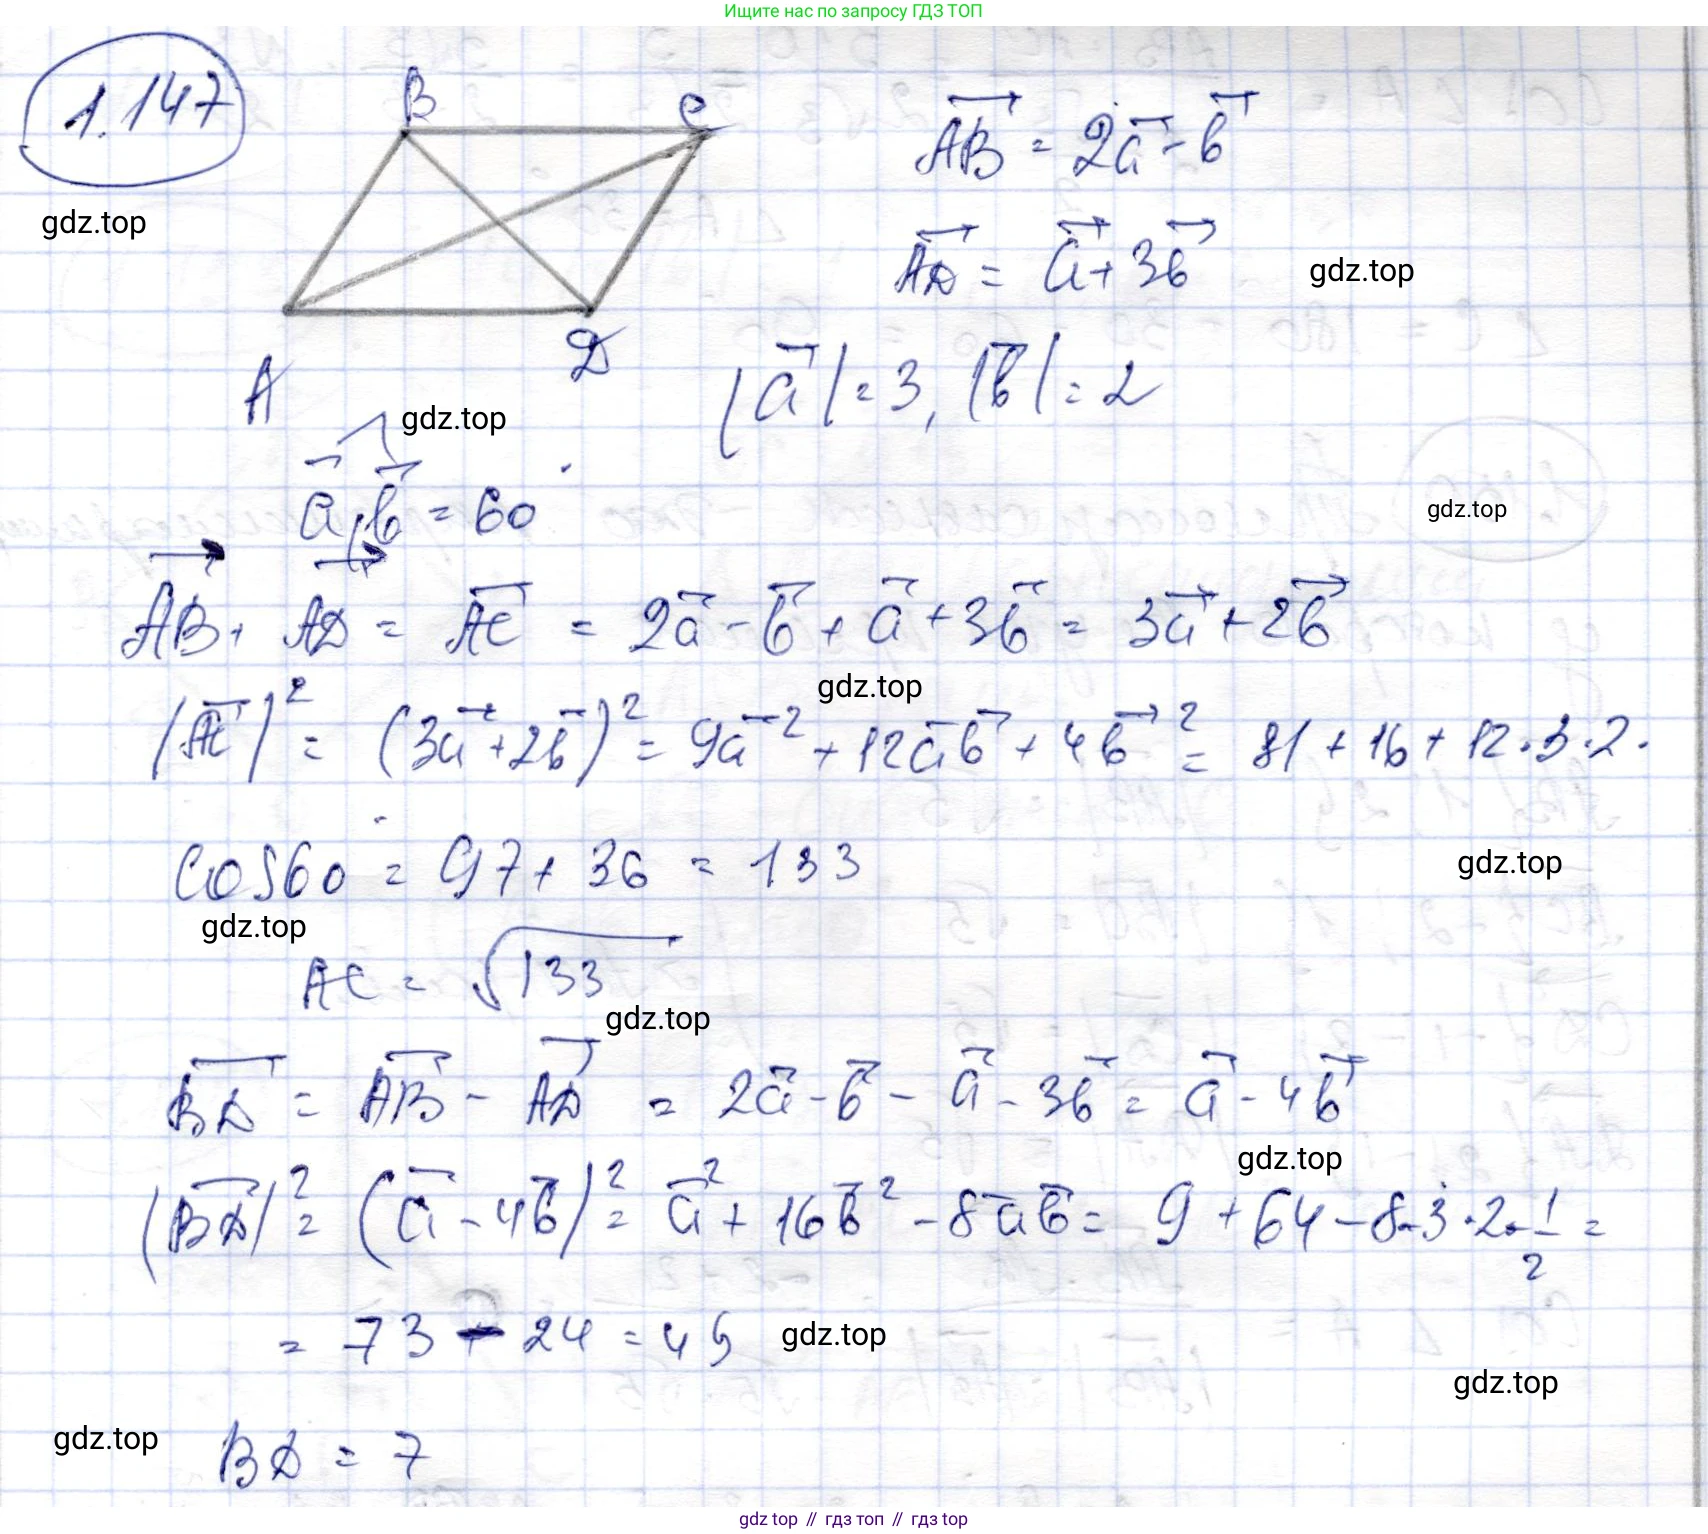 Ищите нас по запросу ГДЗ ТОП
1.147
B
C
A
D
gdz.top
AB = 2a - b
AD = a + 3b
gdz.top
|a| = 3, |b| = 2
gdz.top
a, b = 60°
gdz.top
AB + AD = AC = 2a - b + a + 3b = 3a + 2b
gdz.top
|AC|² = (3a + 2b)² = 9a² + 12ab + 4b² = 81 + 16 + 12·3·2·
cos60° = 97 + 36 = 133
gdz.top
gdz.top
AC = √133
gdz.top
BD = AB - AD = 2a - b - a - 3b = a - 4b
gdz.top
|BD|² = (a - 4b)² = a² + 16b² - 8ab = 9 + 64 - 8·3·2·1/2 =
= 73 - 24 = 49
gdz.top
gdz.top
gdz.top
BD = 7
gdz top // гдз топ // гдз top